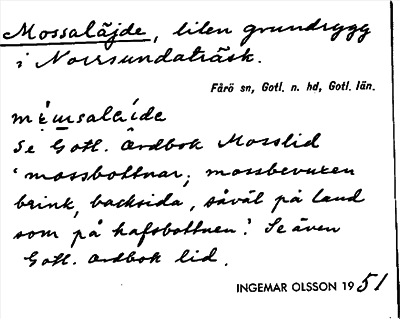 Mossaläjde, liten grundrygg
i Norrsundaträsk.
Fårö sn, Gotl. n. hd, Gotl. län.
Se Gotl. Ordbok Mosslid
'mossbottnar; mossbevuxen
brink, backsida, såväl på land
som på hafsbottnen'. Se även
Gotl. ordbok lid.
INGEMAR OLSSON 1951